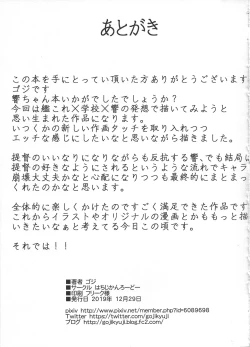 あとがき
この本を手にとってい頂いた方ありがとうございます
ゴジです
響ちゃん本いかがでしたでしょうか？
今回は艦これ×学校×響の発想で描いてみようと
思い生まれた作品になります。
いつくかの新しい作画タッチを取り入れつつ
エッチな感じにしたいなと思いながら描きました。
提督のいいなりになりながらも反抗する響、でも結局
提督の好きなようにされるというような流れでキャラ
崩壊大丈夫かなと心配になりつつも最終的にまとまっ
て良かったです。
全体的に楽しくかけたのですごく満足できた作品です
これからイラストやオリジナルの漫画とかももっと描
いきたいなぁと考えてる今日この頃です。
それでは！！
■著者 ゴジ
■サークル はちじかんろーどー
■印刷 ブリーク様
■発行日 2019年 12月29日
pixiv http://www.pixiv.net/member.php?id=6089698
Twitter https://twitter.com/gojikyuji
ブログ http://gojikyuji.blog.fc2.com/